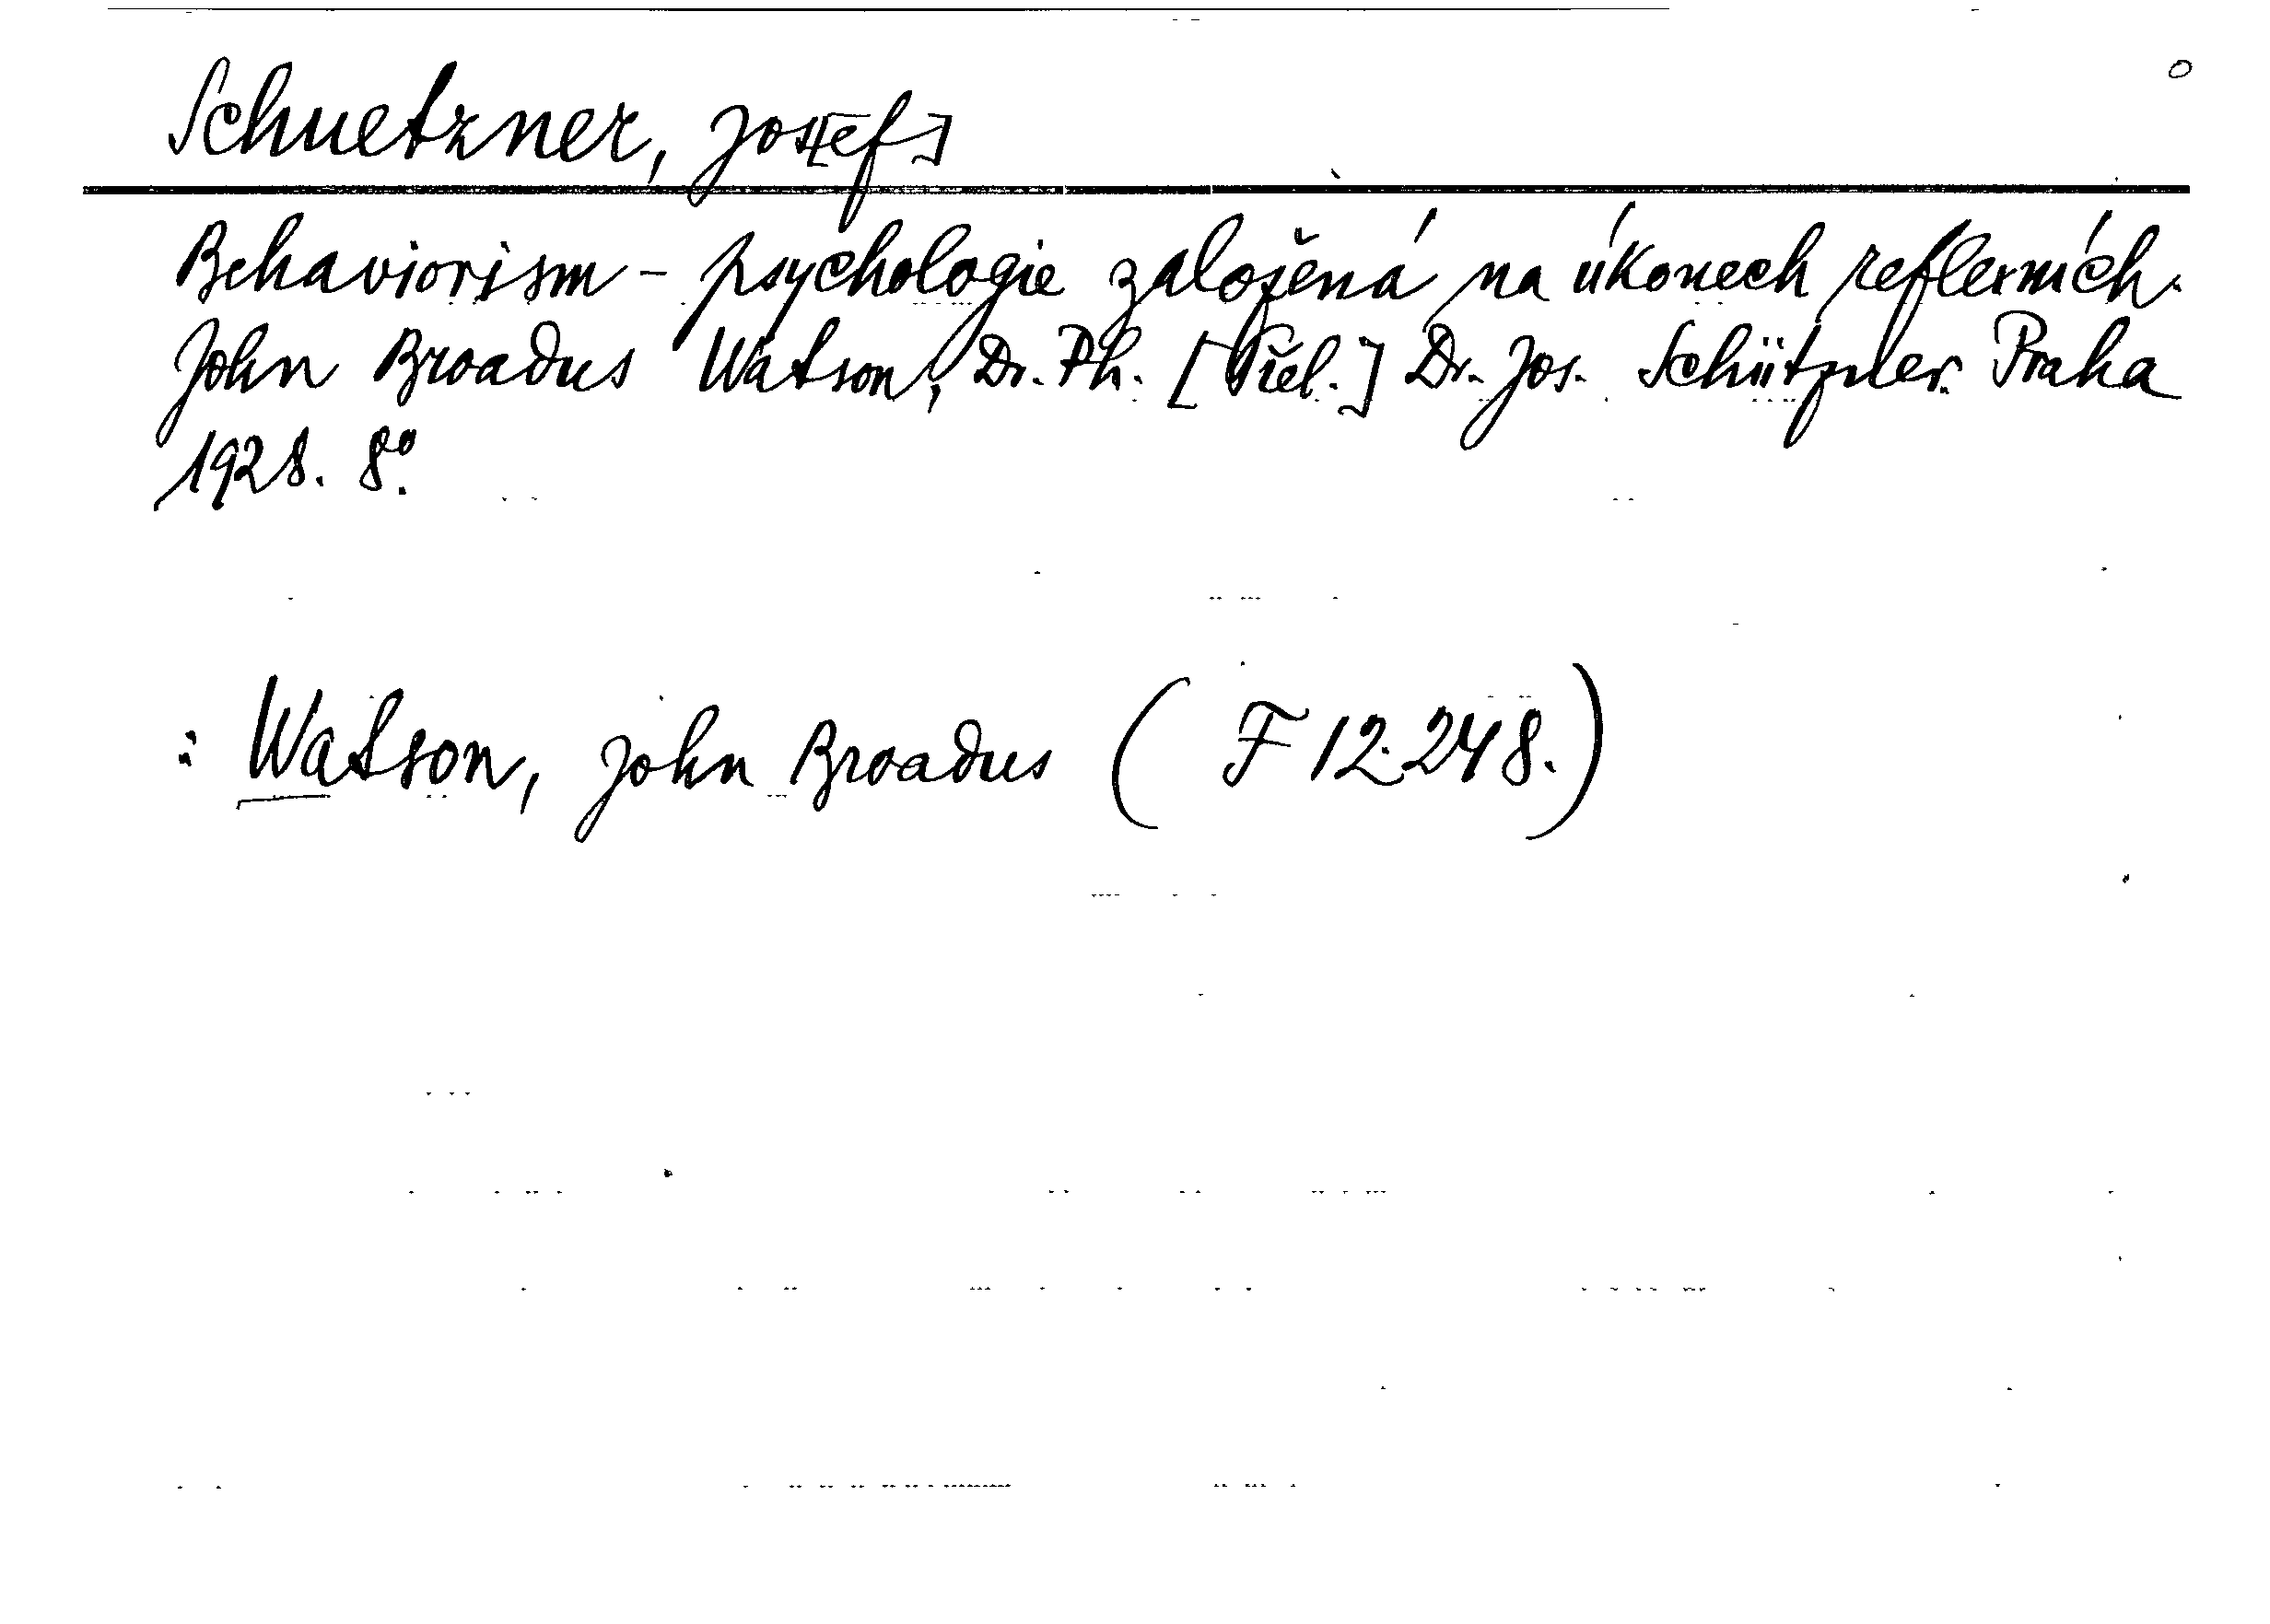 Schuetzner, Jos[ef]
Behaviorism - psychologie založená na úkonech reflexních.
John Broadus Watson, Dr. Ph. [Přel.] Dr. Jos. Schützner. Praha
1928. 8°.
: Watson, John Broadus ( F 12.248.)